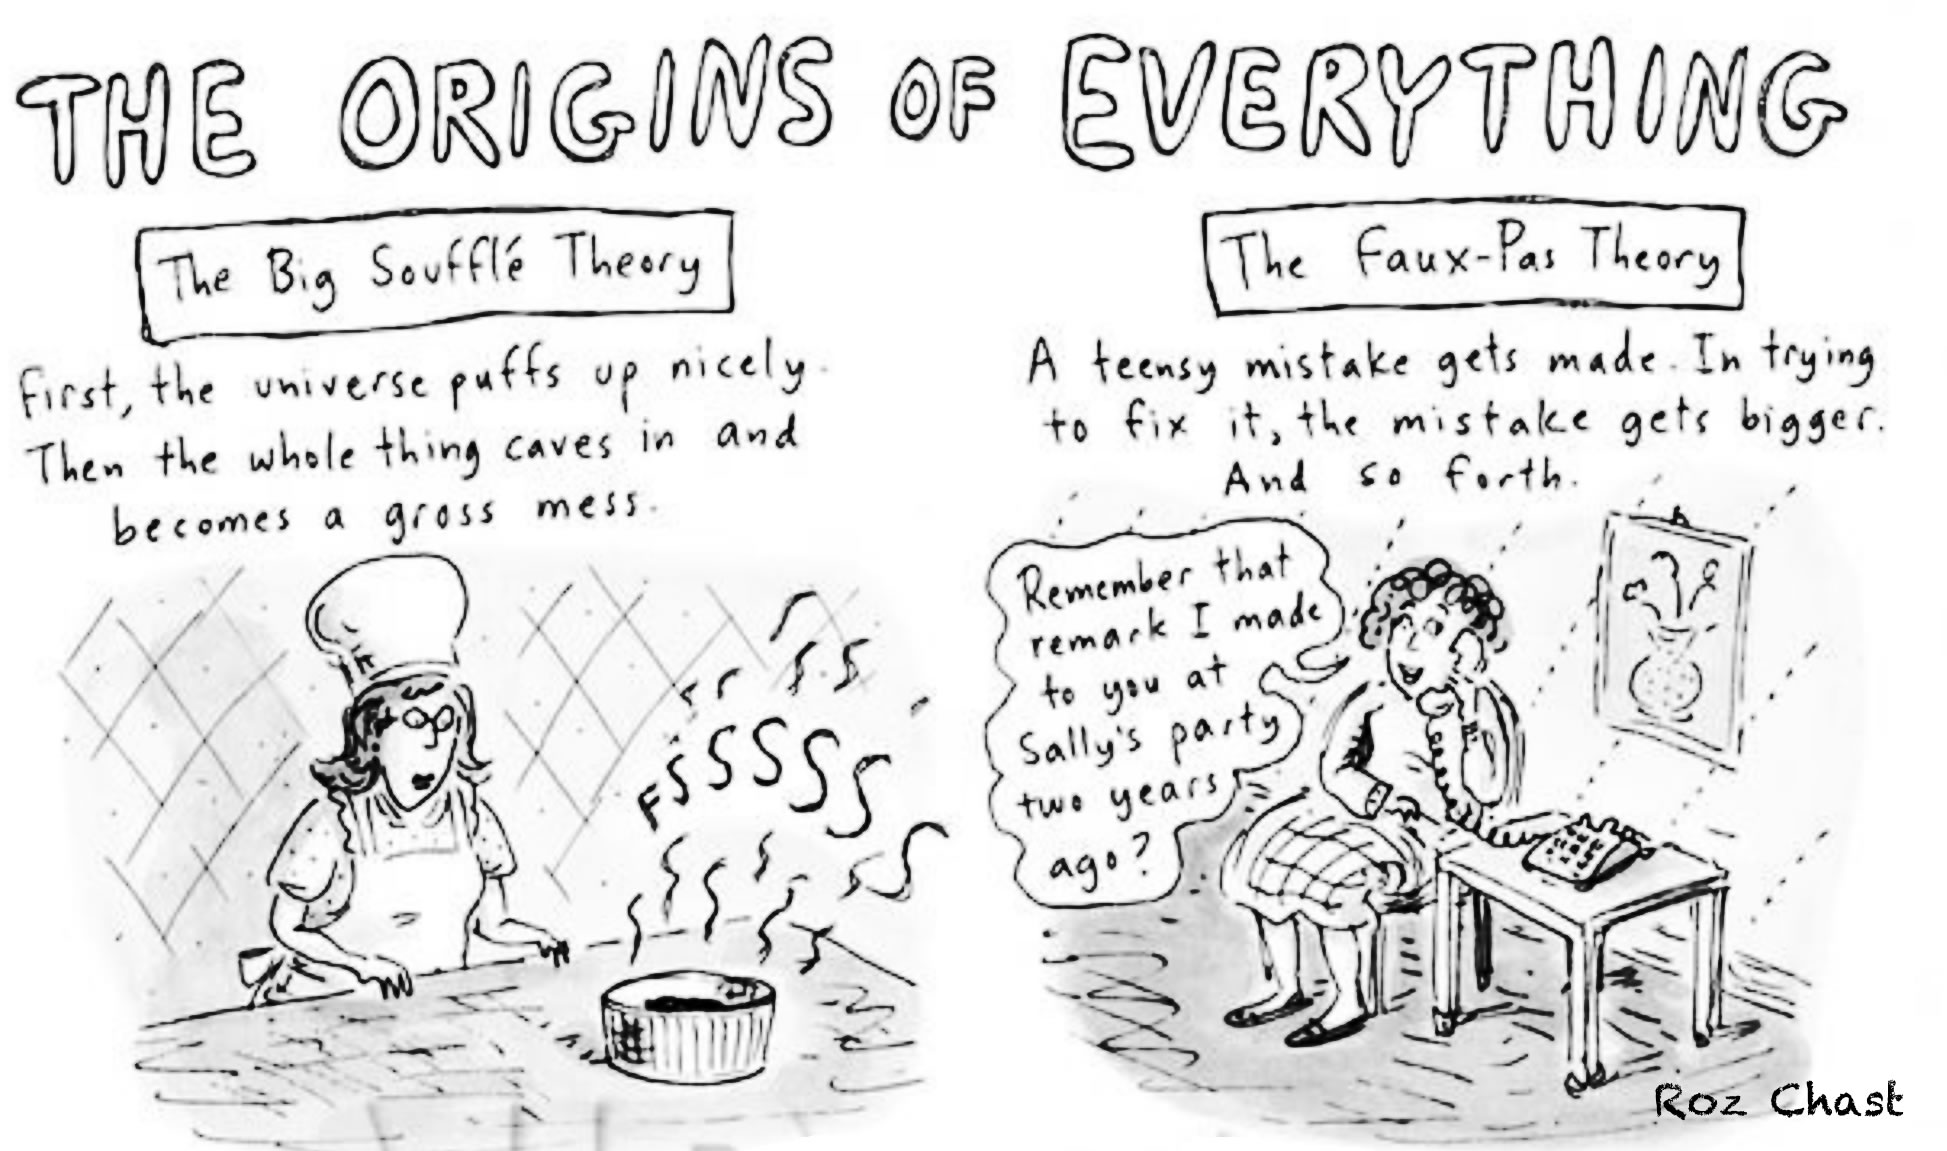 THE ORIGINS OF EVERYTHING
The Big Soufflé Theory
First, the universe puffs up nicely.
Then the whole thing caves in and
becomes a gross mess.
FSSSSSS
The Faux-Pas Theory
A teensy mistake gets made. In trying
to fix it, the mistake gets bigger.
And so forth.
Remember that
remark I made
to you at
Sally's party
two years
ago?
Roz Chast